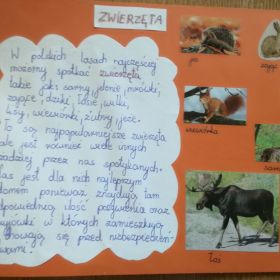 ZWIERZĘTA
W polskich lasach najczęściej
możemy spotkać zwierzęta
takie jak: sarny, jelenie, mrówki,
zające, dziki, łosie, wilki,
lisy, wiewiórki, żubry i jeże.
To są najpopularniejsze zwierzęta
ale jest również wiele innych
rzadziej przez nas spotykanych.
Las jest dla nich najlepszym
domem ponieważ znajdują tam
odpowiednią ilość pożywienia oraz
kryjówki w których zamieszkują
chowają się przed niebezpieczeń-
stwami.
jeż
zając
wiewiórka
sarn
łoś